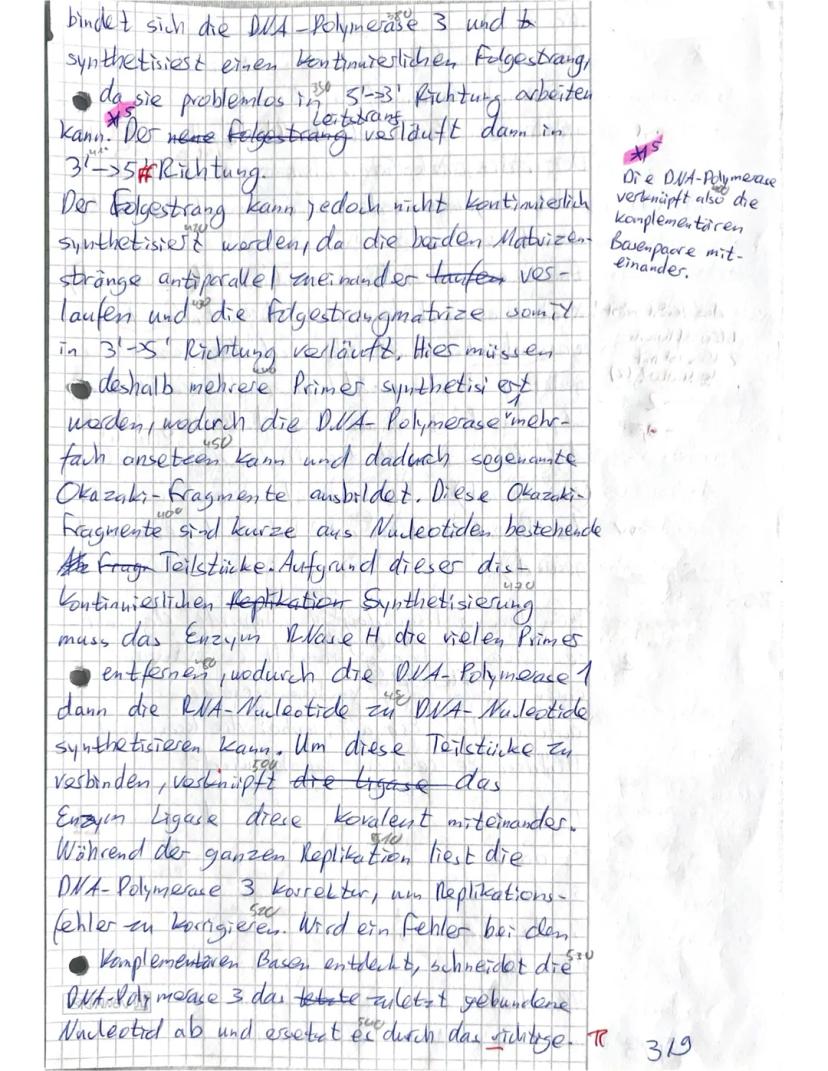 bindet sich die DNA-Polymerase 3 und
synthetisiest einen kontinuierlichen Folgestrang,
da sie problemlos in 5'->3' Richtung arbeiten
*5 Leitstrang
kann. Der neue Folgestrang verläuft dann in
3'->5 Richtung.
Der Folgestrang kann jedoch nicht kontinuierlich
synthetisiert werden, da die beiden Matrizen-
stränge antiparallel zueinander laufen ver-
laufen und die Folgestrangmatrize somit
in 3'->5' Richtung verläuft. Hier müssen
deshalb mehrere Primer synthetisiert
1
werden, wodurch die DNA-Polymerase mehr-
fach ansetzen kann und dadurch sogenannte
Okazaki-Fragmente ausbildet. Diese Okazaki-
Fragmente sind kurze aus Nucleotiden bestehende
Fragm Teilstücke. Aufgrund dieser dis-
kontinuierlichen Replikation Synthetisierung
muss das Enzym RNase H die vielen Primer
entfernen, wodurch die DNA-Polymerase 1
dann die RNA-Nucleotide zu DNA-Nucleotide
synthetisieren kann. Um diese Teilstücke zu
verbinden, verknüpft die Ligase das
Enzym Ligase diese kovalent miteinander.
Während der ganzen Replikation liest die
DNA-Polymerase 3 Korrektur, um Replikations-
fehler zu korrigieren. Wird ein Fehler bei den
komplementären Basen entdeckt, schneidet die
DNA-Polymerase 3 das letzte zuletzt gebundene
Nucleotid ab und ersetzt es durch das richtige. R
319
*5
Die DNA-Polymerase
verknüpft also die
komplementären
Basenpaare mit-
einander.